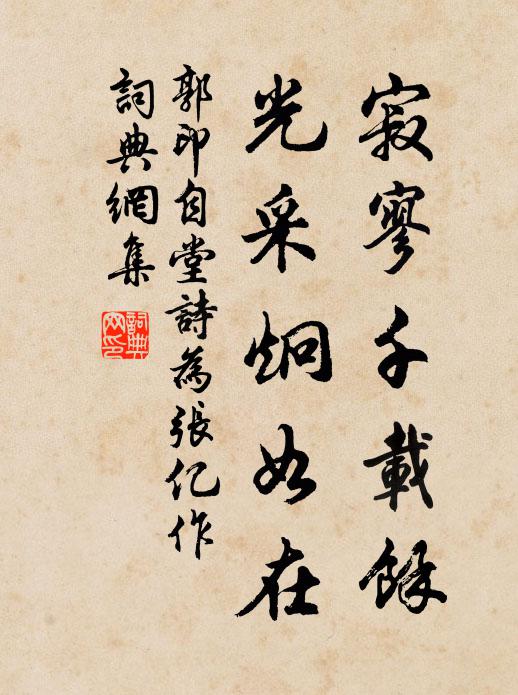 寂寥千載餘
光采炯如在
郭印自堂詩為張仁作
詞典網集
詞典網印